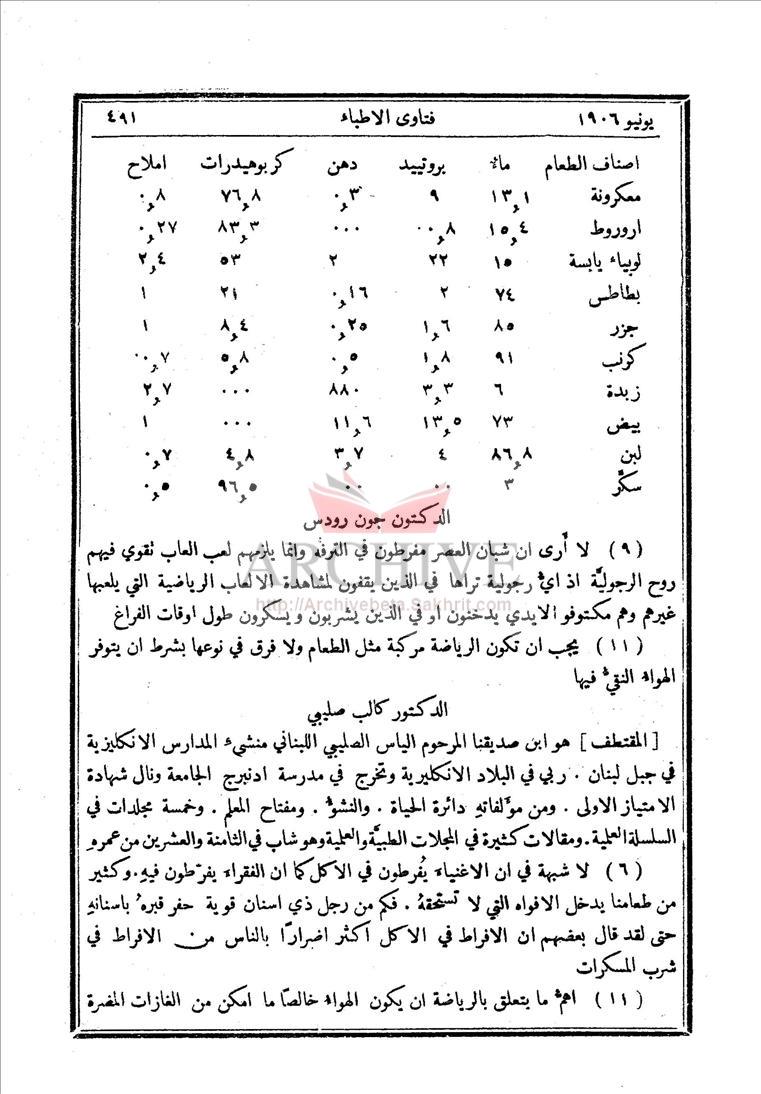 يونيو ١٩٠٦ فتاوى الاطباء ٤٩١
اصناف الطعام ماء بروتييد دهن كربوهيدرات املاح
معكرونة ١٣,١ ٩ ٠,٣ ٧٦,٨ ٠,٨
اروروط ١٥,٤ ٠٠,٨ ٠٠٠ ٨٣,٣ ٠,٢٧
لوبياء يابسة ١٥ ٢٢ ٢ ٥٣ ٢,٤
بطاطس ٧٤ ٢ ٠,١٦ ٢١ ١
جزر ٨٥ ١,٦ ٠,٢٥ ٨,٤ ١
كرنب ٩١ ١,٨ ٠,٥ ٥,٨ ٠٠,٧
زبدة ٦ ٣,٣ ٨٨٠ ٠٠٠ ٢,٧
بيض ٧٣ ١٣,٥ ١١,٦ ٠٠٠ ١
لبن ٨٦,٨ ٤ ٣,٧ ٤,٨ ٠,٧
سكّر ٣ ٠٠ ٠٠ ٩٦,٥ ٠,٥
الدكتون جون رودس
(٩) لا أرى ان شبان العصر مفرطون في الترفه وانما يلزمهم لعب العاب تقوي فيهم
ARCHIVE
روح الرجوليَّة اذ ايُّ رجولية تراها في الذين يقفون لمشاهدة الالعاب الرياضية التي يلعبها
http://Archivebeta.Sakhrit.com
غيرهم وهم مكتوفو الايدي يدخنون او في الذين يشربون ويسكرون طول اوقات الفراغ
(١١) يجب ان تكون الرياضة مركبة مثل الطعام ولا فرق في نوعها بشرط ان يتوفر
الهواء النقيُّ فيها
الدكتور كالب صليبي
[المقتطف] هو ابن صديقنا المرحوم الياس الصليبي اللبناني منشىء المدارس الانكليزية
في جبل لبنان . ربي في البلاد الانكليرية وتخرج في مدرسة ادنبرج الجامعة ونال شهادة
الامتياز الاولى . ومن مؤلفاته دائرة الحياة . والنشوء . ومفتاح المعلم . وخمسة مجلدات في
السلسلة العلمية . ومقالات كثيرة في المجلات الطبيَّة والعلمية وهو شاب في الثامنة والعشرين من عمره
(٦) لا شبهة في ان الاغنياء يُفرطون في الاكل كما ان الفقراء يفرّطون فيه . وكثير
من طعامنا يدخل الافواه التي لا تستحقهُ . فكم من رجل ذي اسنان قوية حفر قبرهُ باسنانه
حتى لقد قال بعضهم ان الافراط في الاكل اكثر اضرارًا بالناس من الافراط في
شرب المسكرات
(١١) اهمُّ ما يتعلق بالرياضة ان يكون الهواء خالصًا ما امكن من الغازات المضرة